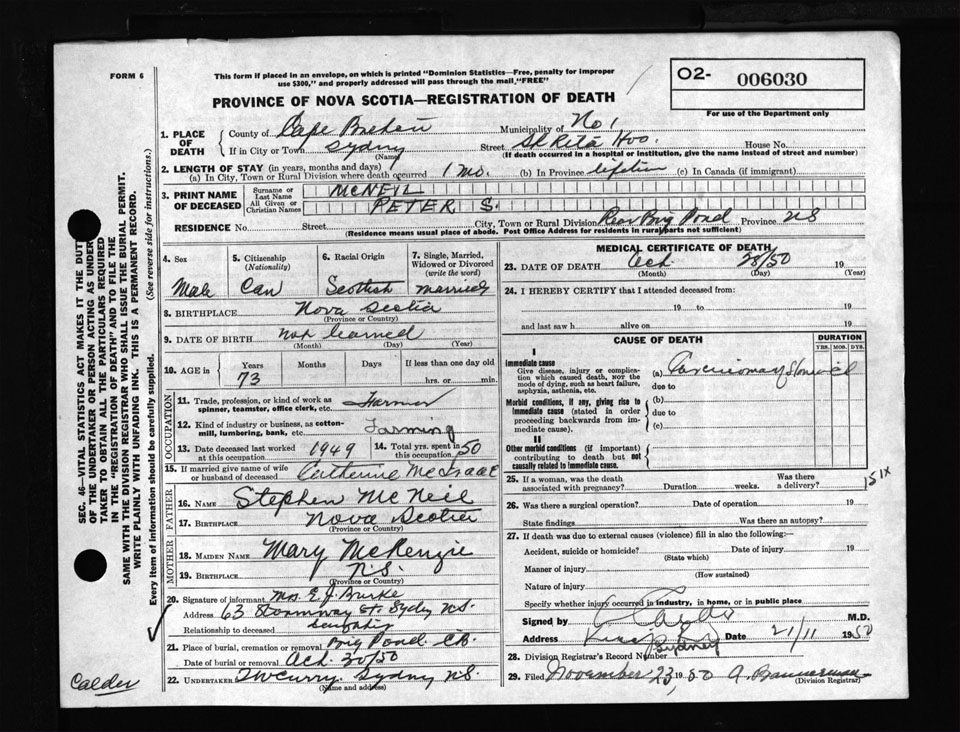 FORM 6
This form if placed in an envelope, on which is printed "Dominion Statistics—Free, penalty for improper
use $300," and properly addressed will pass through the mail, "FREE"
O2- 006030
For use of the Department only
PROVINCE OF NOVA SCOTIA—REGISTRATION OF DEATH
1. PLACE OF DEATH
County of Cape Breton Municipality of No 1
If in City or Town Sydney Street St Rita Hos. House No.
(Name) (If death occurred in a hospital or institution, give the name instead of street and number)
2. LENGTH OF STAY (in years, months and days)
(a) In City, Town or Rural Division where death occurred 1 mo. (b) In Province lifetime (c) In Canada (if immigrant)
3. PRINT NAME OF DECEASED
Surname or Last Name MCNEIL
All Given or Christian Names PETER S.
RESIDENCE No. Street City, Town or Rural Division Rear Big Pond Province NS
(Residence means usual place of abode. Post Office Address for residents in rural parts not sufficient)
4. Sex
Male
5. Citizenship (Nationality)
Can
6. Racial Origin
Scottish
7. Single, Married, Widowed or Divorced (write the word)
married
8. BIRTHPLACE Nova Scotia
(Province or Country)
9. DATE OF BIRTH not learned
(Month) (Day) (Year)
10. AGE in Years Months Days If less than one day old
73 hrs. or min.
OCCUPATION
11. Trade, profession, or kind of work as spinner, teamster, office clerk, etc. Farmer
12. Kind of industry or business, as cotton-mill, lumbering, bank, etc. Farming
13. Date deceased last worked at this occupation 1949
14. Total yrs. spent in this occupation 50
15. If married give name of wife or husband of deceased Catherine McIsaac
FATHER
16. NAME Stephen McNeil
17. BIRTHPLACE Nova Scotia
(Province or Country)
MOTHER
18. MAIDEN NAME Mary McKenzie
19. BIRTHPLACE N.S.
(Province or Country)
20. Signature of informant Mrs. E. J. Burke
Address 63 St. Sydney N.S.
Relationship to deceased daughter
21. Place of burial, cremation or removal Big Pond C.B.
Date of burial or removal Oct. 30/50
22. UNDERTAKER TW Curry. Sydney N.S.
(Name and address)
MEDICAL CERTIFICATE OF DEATH
23. DATE OF DEATH Oct. 28/50 19
(Month) (Day) (Year)
24. I HEREBY CERTIFY that I attended deceased from:
19 to 19
and last saw h alive on 19
CAUSE OF DEATH
DURATION
YRS. MOS. DYS.
I
Immediate cause
Give disease, injury or complication which caused death, NOT the mode of dying, such as heart failure, asphyxia, asthenia, etc.
(a) Carcinoma of Stomach
due to
Morbid conditions, if any, giving rise to immediate cause (stated in order proceeding backwards from immediate cause).
(b)
due to
(c)
II
Other morbid conditions (if important) contributing to death but not causally related to immediate cause.
25. If a woman, was the death associated with pregnancy? Duration weeks. Was there a delivery?
151X
26. Was there a surgical operation? Date of operation 19
State findings Was there an autopsy?
27. If death was due to external causes (violence) fill in also the following:—
Accident, suicide or homicide? Date of injury 19
(State which)
Manner of injury
(How sustained)
Nature of injury
Specify whether injury occurred in industry, in home, or in public place
Signed by M.D.
Address Sydney Date 21/11 1950
28. Division Registrar's Record Number
29. Filed November 23, 1950 A. Bannerman
(Division Registrar)
SEC. 46—VITAL STATISTICS ACT MAKES IT THE DUTY
OF THE UNDERTAKER OR PERSON ACTING AS UNDER-
TAKER TO OBTAIN ALL THE PARTICULARS REQUIRED
IN THE "REGISTRATION OF DEATH" AND TO FILE THE
SAME WITH THE DIVISION REGISTRAR WHO SHALL ISSUE THE BURIAL PERMIT.
WRITE PLAINLY WITH UNFADING INK. THIS IS A PERMANENT RECORD.
Every item of information should be carefully supplied. (See reverse side for instructions.)
Calder